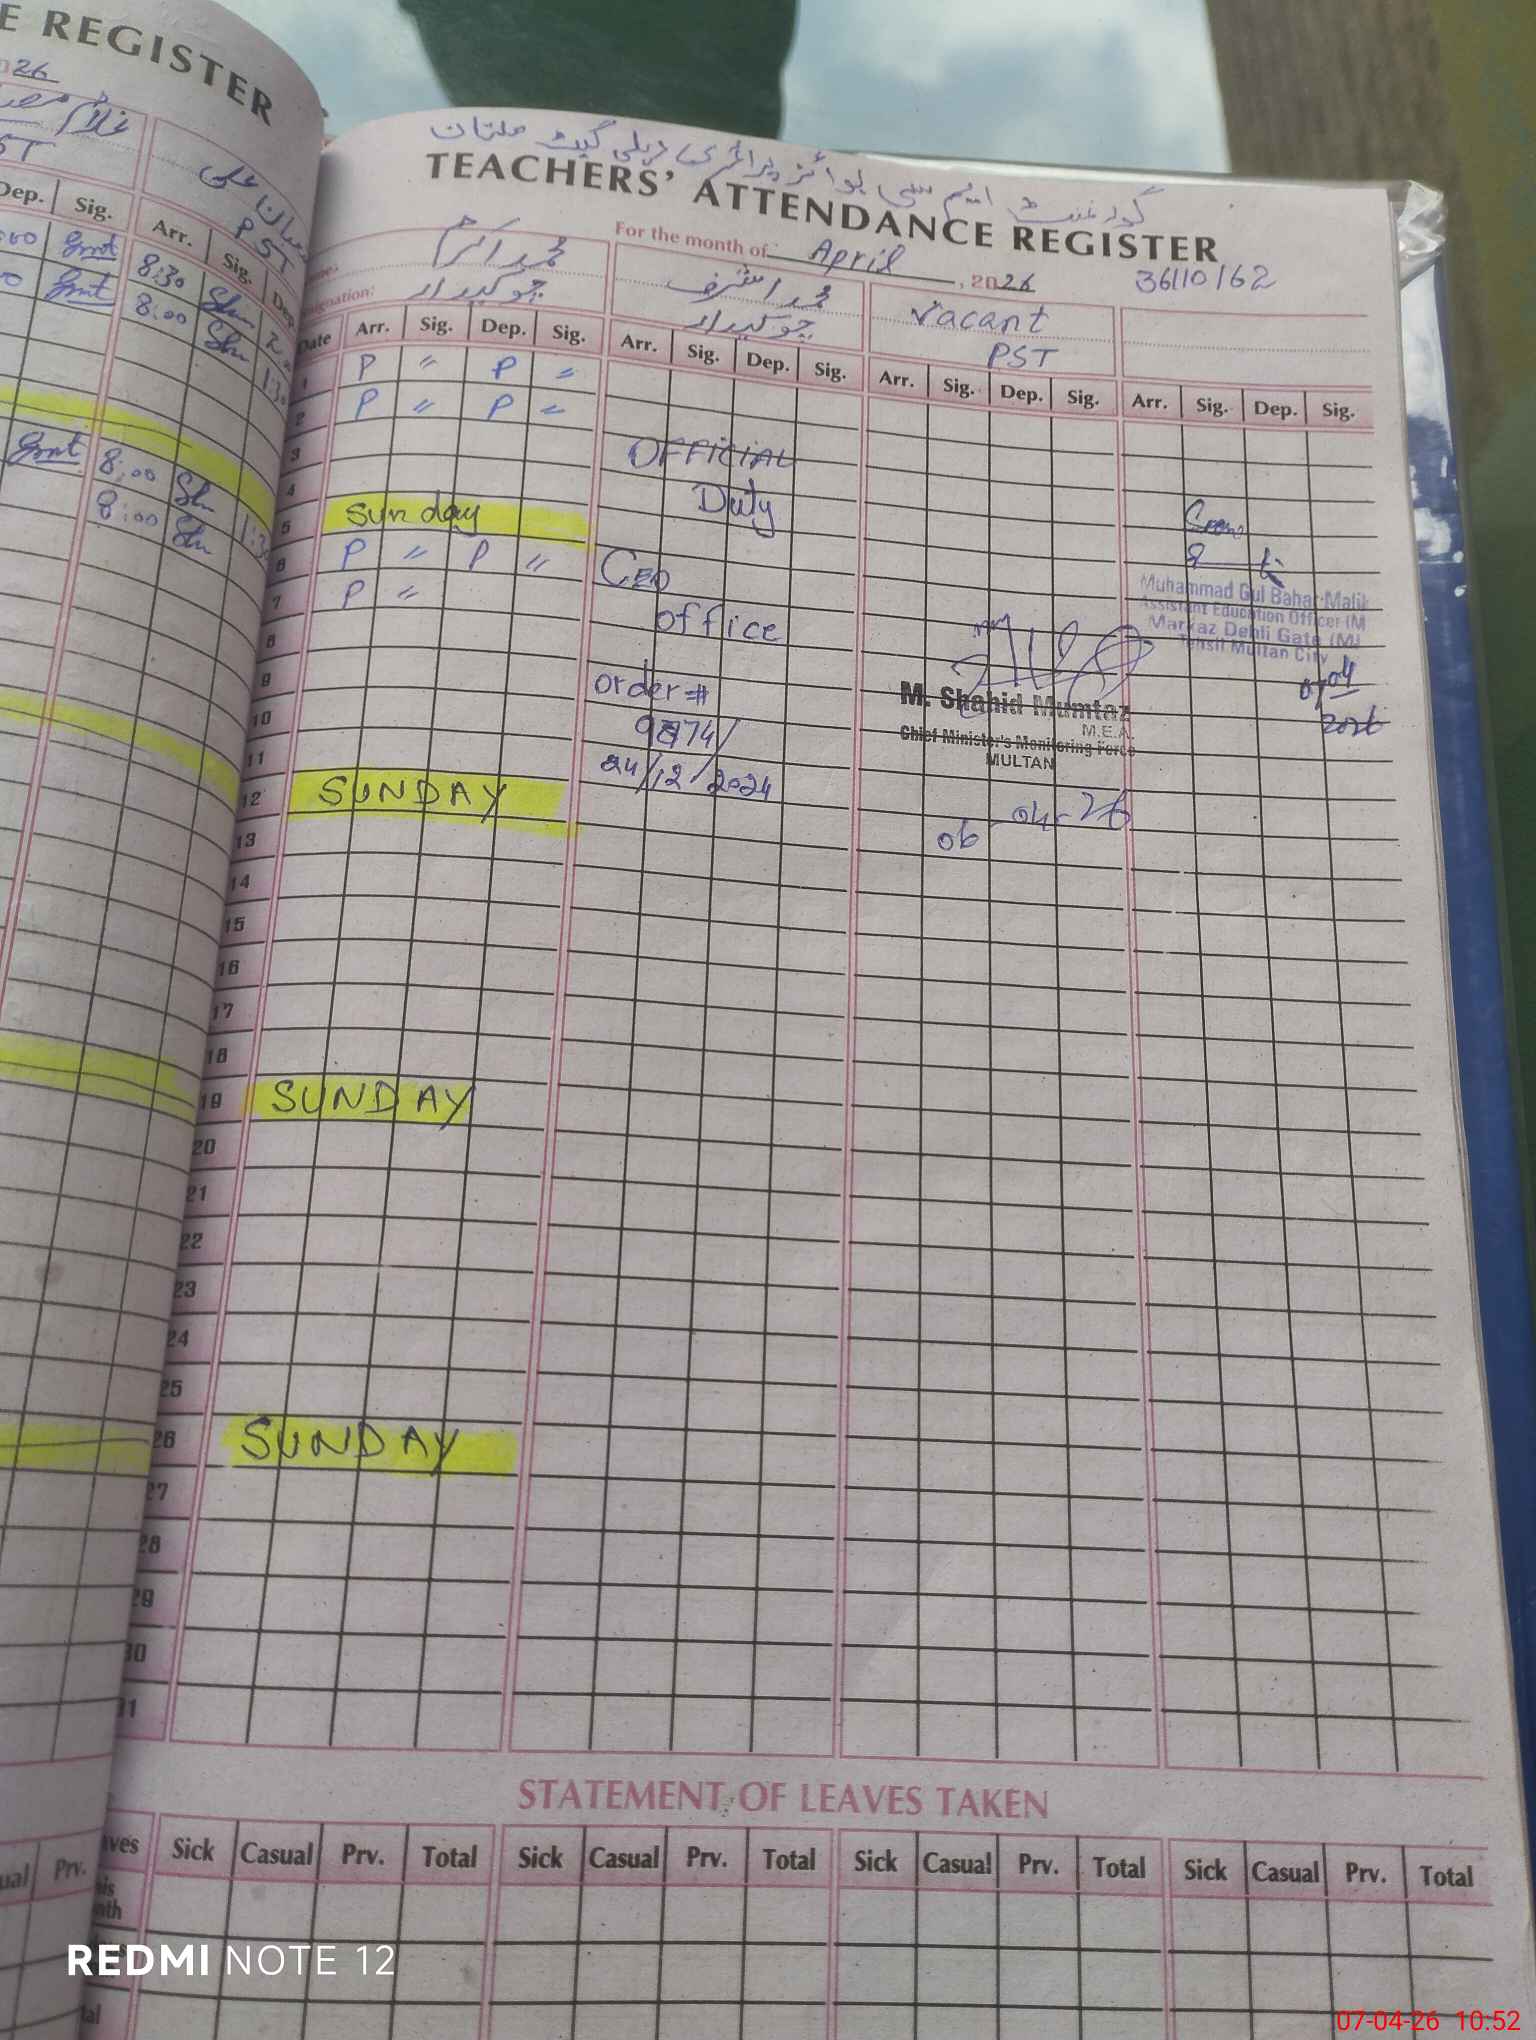 E REGISTER
26
غلام
ST
PST
Dep. Sig. Arr. Sig. Dep.
8:30
8:00
1:30
8:00
8:00
گورنمنٹ ایم سی بوائز پرائمری دہلی گیٹ ملتان
TEACHERS' ATTENDANCE REGISTER
For the month of: April, 2026
36110162
محمد اکرم
چوکیدار
محمد اشرف
چوکیدار
Vacant
PST
Date Arr. Sig. Dep. Sig. Arr. Sig. Dep. Sig. Arr. Sig. Dep. Sig. Arr. Sig. Dep. Sig.
1 P " P "
2 P " P "
3
4
5 Sunday
6 P " P "
7 P "
8
9
10
11
12 SUNDAY
13
14
15
16
17
18
19 SUNDAY
20
21
22
23
24
25
26 SUNDAY
27
28
29
30
31
OFFICIAL
Duty
CEO
office
order #
24/12/2024
M. Shahid Mumtaz
M.E.A.
Chief Minister's Monitoring Force
MULTAN
06-04-26
Seen
Muhammad Gul Bahar Malik
Assistant Education Officer (M
Markaz Dehli Gate (M)
Tehsil Multan City
07/04
2026
STATEMENT OF LEAVES TAKEN
Leaves Sick Casual Prv. Total Sick Casual Prv. Total Sick Casual Prv. Total Sick Casual Prv. Total
Prv.
REDMI NOTE 12
07-04-26 10:52